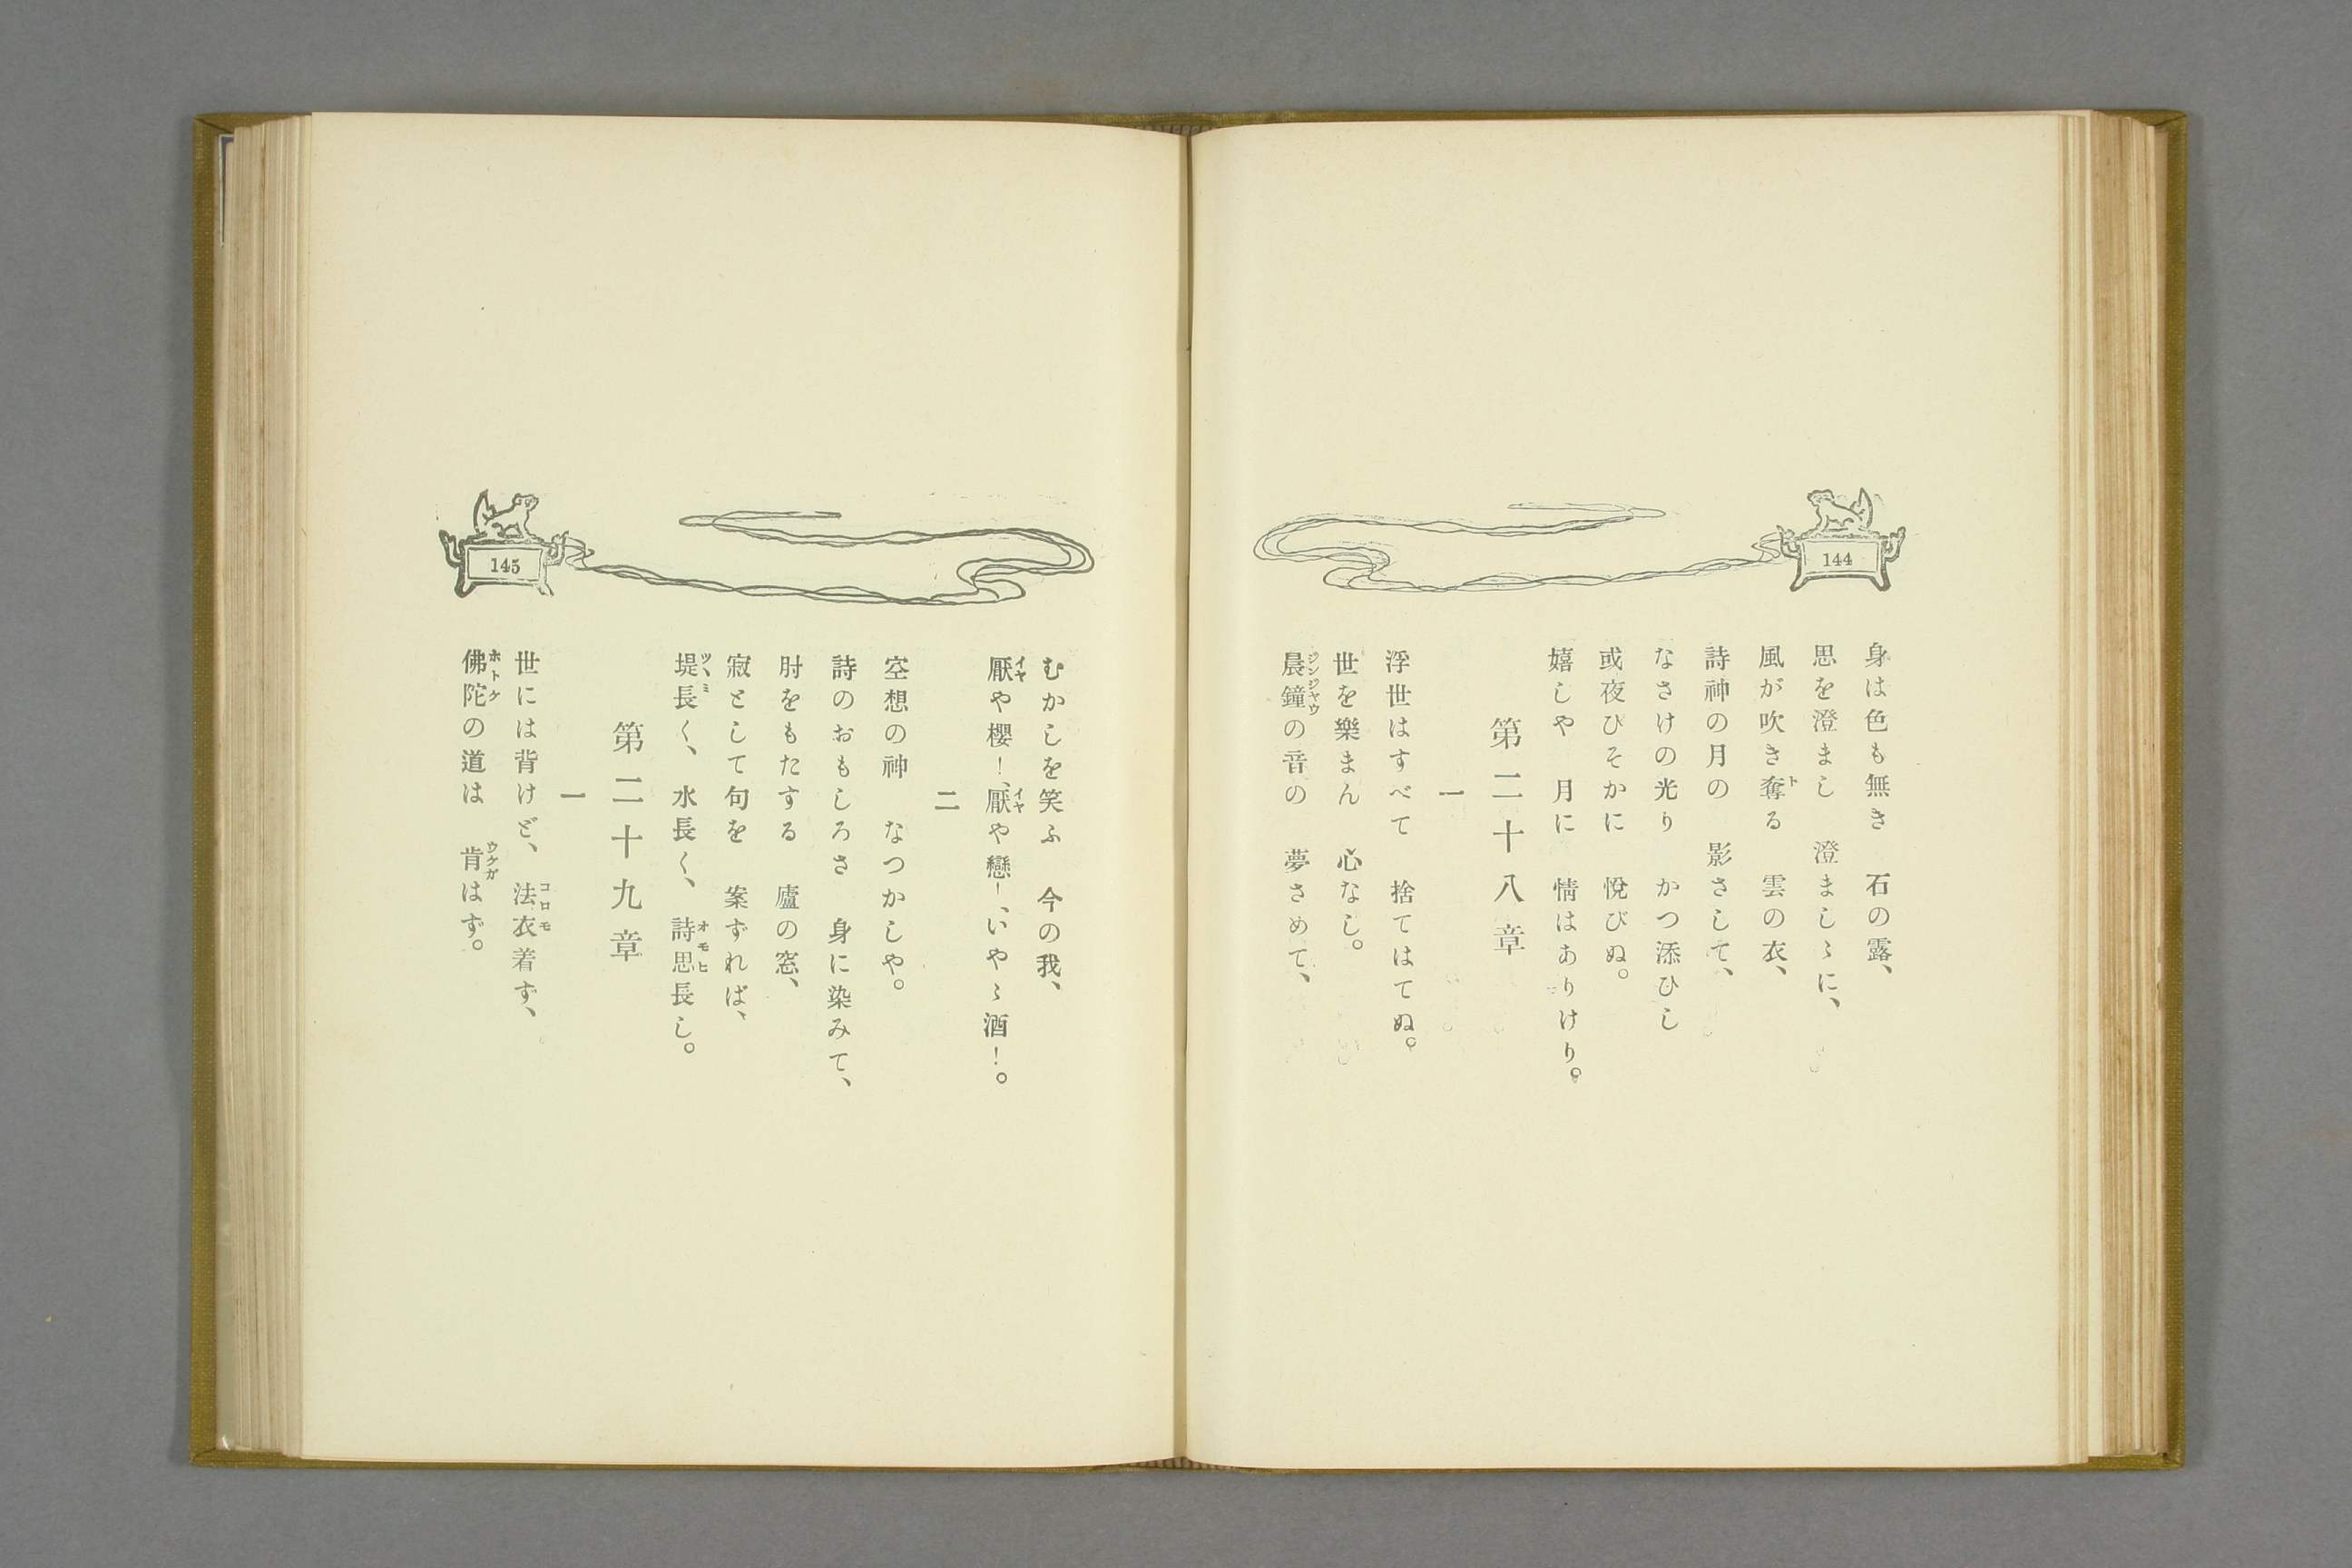 144
身は色も無き　石の露、
思を澄まし　澄ましゝに、
風が吹き奪る　雲の衣、
詩神の月の　影さして、
なさけの光り　かつ添ひし
或夜ひそかに　悅びぬ。
嬉しや　月に　情はありけり。
第二十八章
一
浮世はすべて　捨てはてぬ。
世を樂まん　心なし。
晨鐘の音の　夢さめて、
145
むかしを笑ふ　今の我、
厭や櫻！、厭や戀！、いやゝ酒！。
二
空想の神　なつかしや。
詩のおもしろさ　身に染みて、
肘をもたする　廬の窓、
寂として句を　案ずれば、
堤長く、水長く、詩思長し。
第二十九章
一
世には背けど、法衣着ず、
佛陀の道は　肯はず。